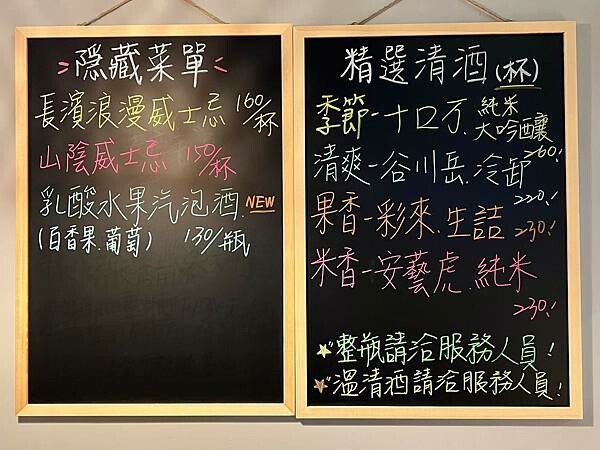 隱藏菜單
長濱浪漫威士忌 160/杯
山陰威士忌 150/杯
乳酸水果汽泡酒. NEW
(百香果.葡萄) 130/瓶
精選清酒(杯)
季節-十口万. 純米大吟釀
260.!
清爽-谷川岳.冷卸
220.!
果香-彩來.生詰 230.!
米香-安藝虎.純米
230.!
☆整瓶請洽服務人員!
☆溫清酒請洽服務人員!